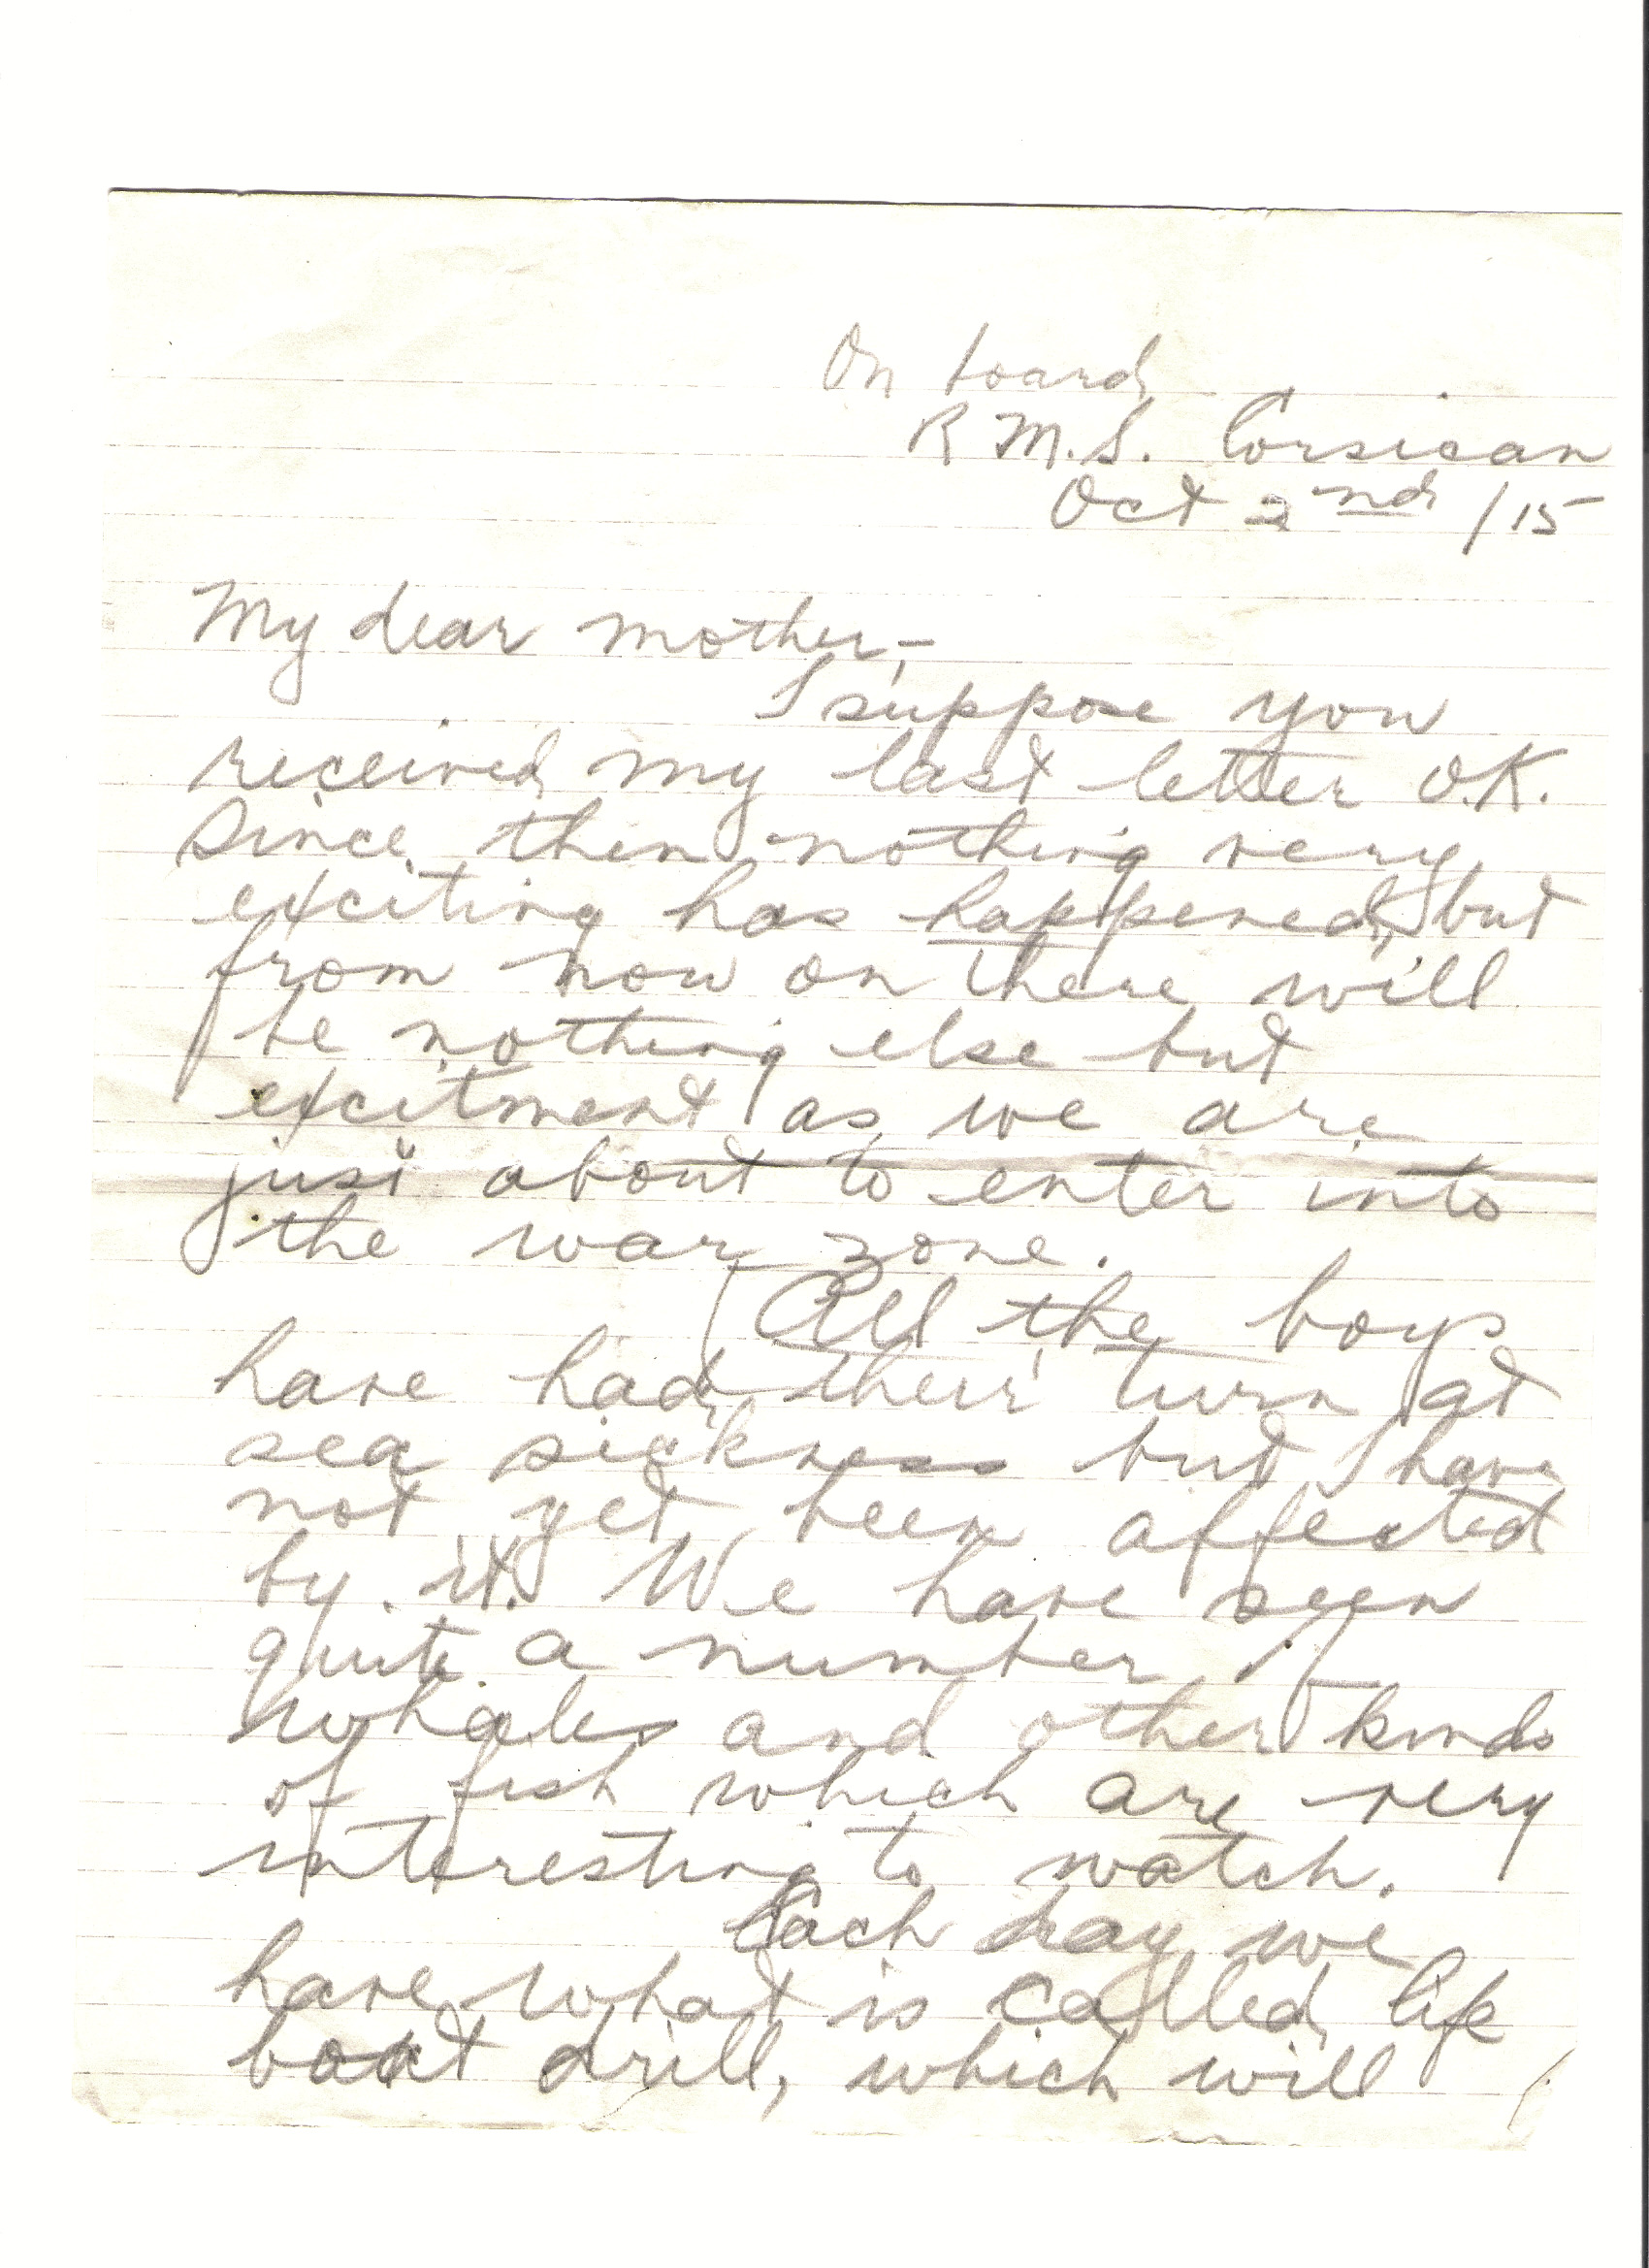 On board
R M.S. Corsican
Oct 2nd /15
My dear mother,-
I suppose you
received my last letter O.K.
Since then nothing very
exciting has happened, but
from now on there will
be nothing else but
excitment as we are
just about to enter into
the war zone.
All the boys
have had their turn at
sea sickness but I have
not yet been affected
by it. We have seen
quite a number of
whales and other kinds
of fish which are very
interesting to watch.
Each day we
have what is called life
boat drill, which will